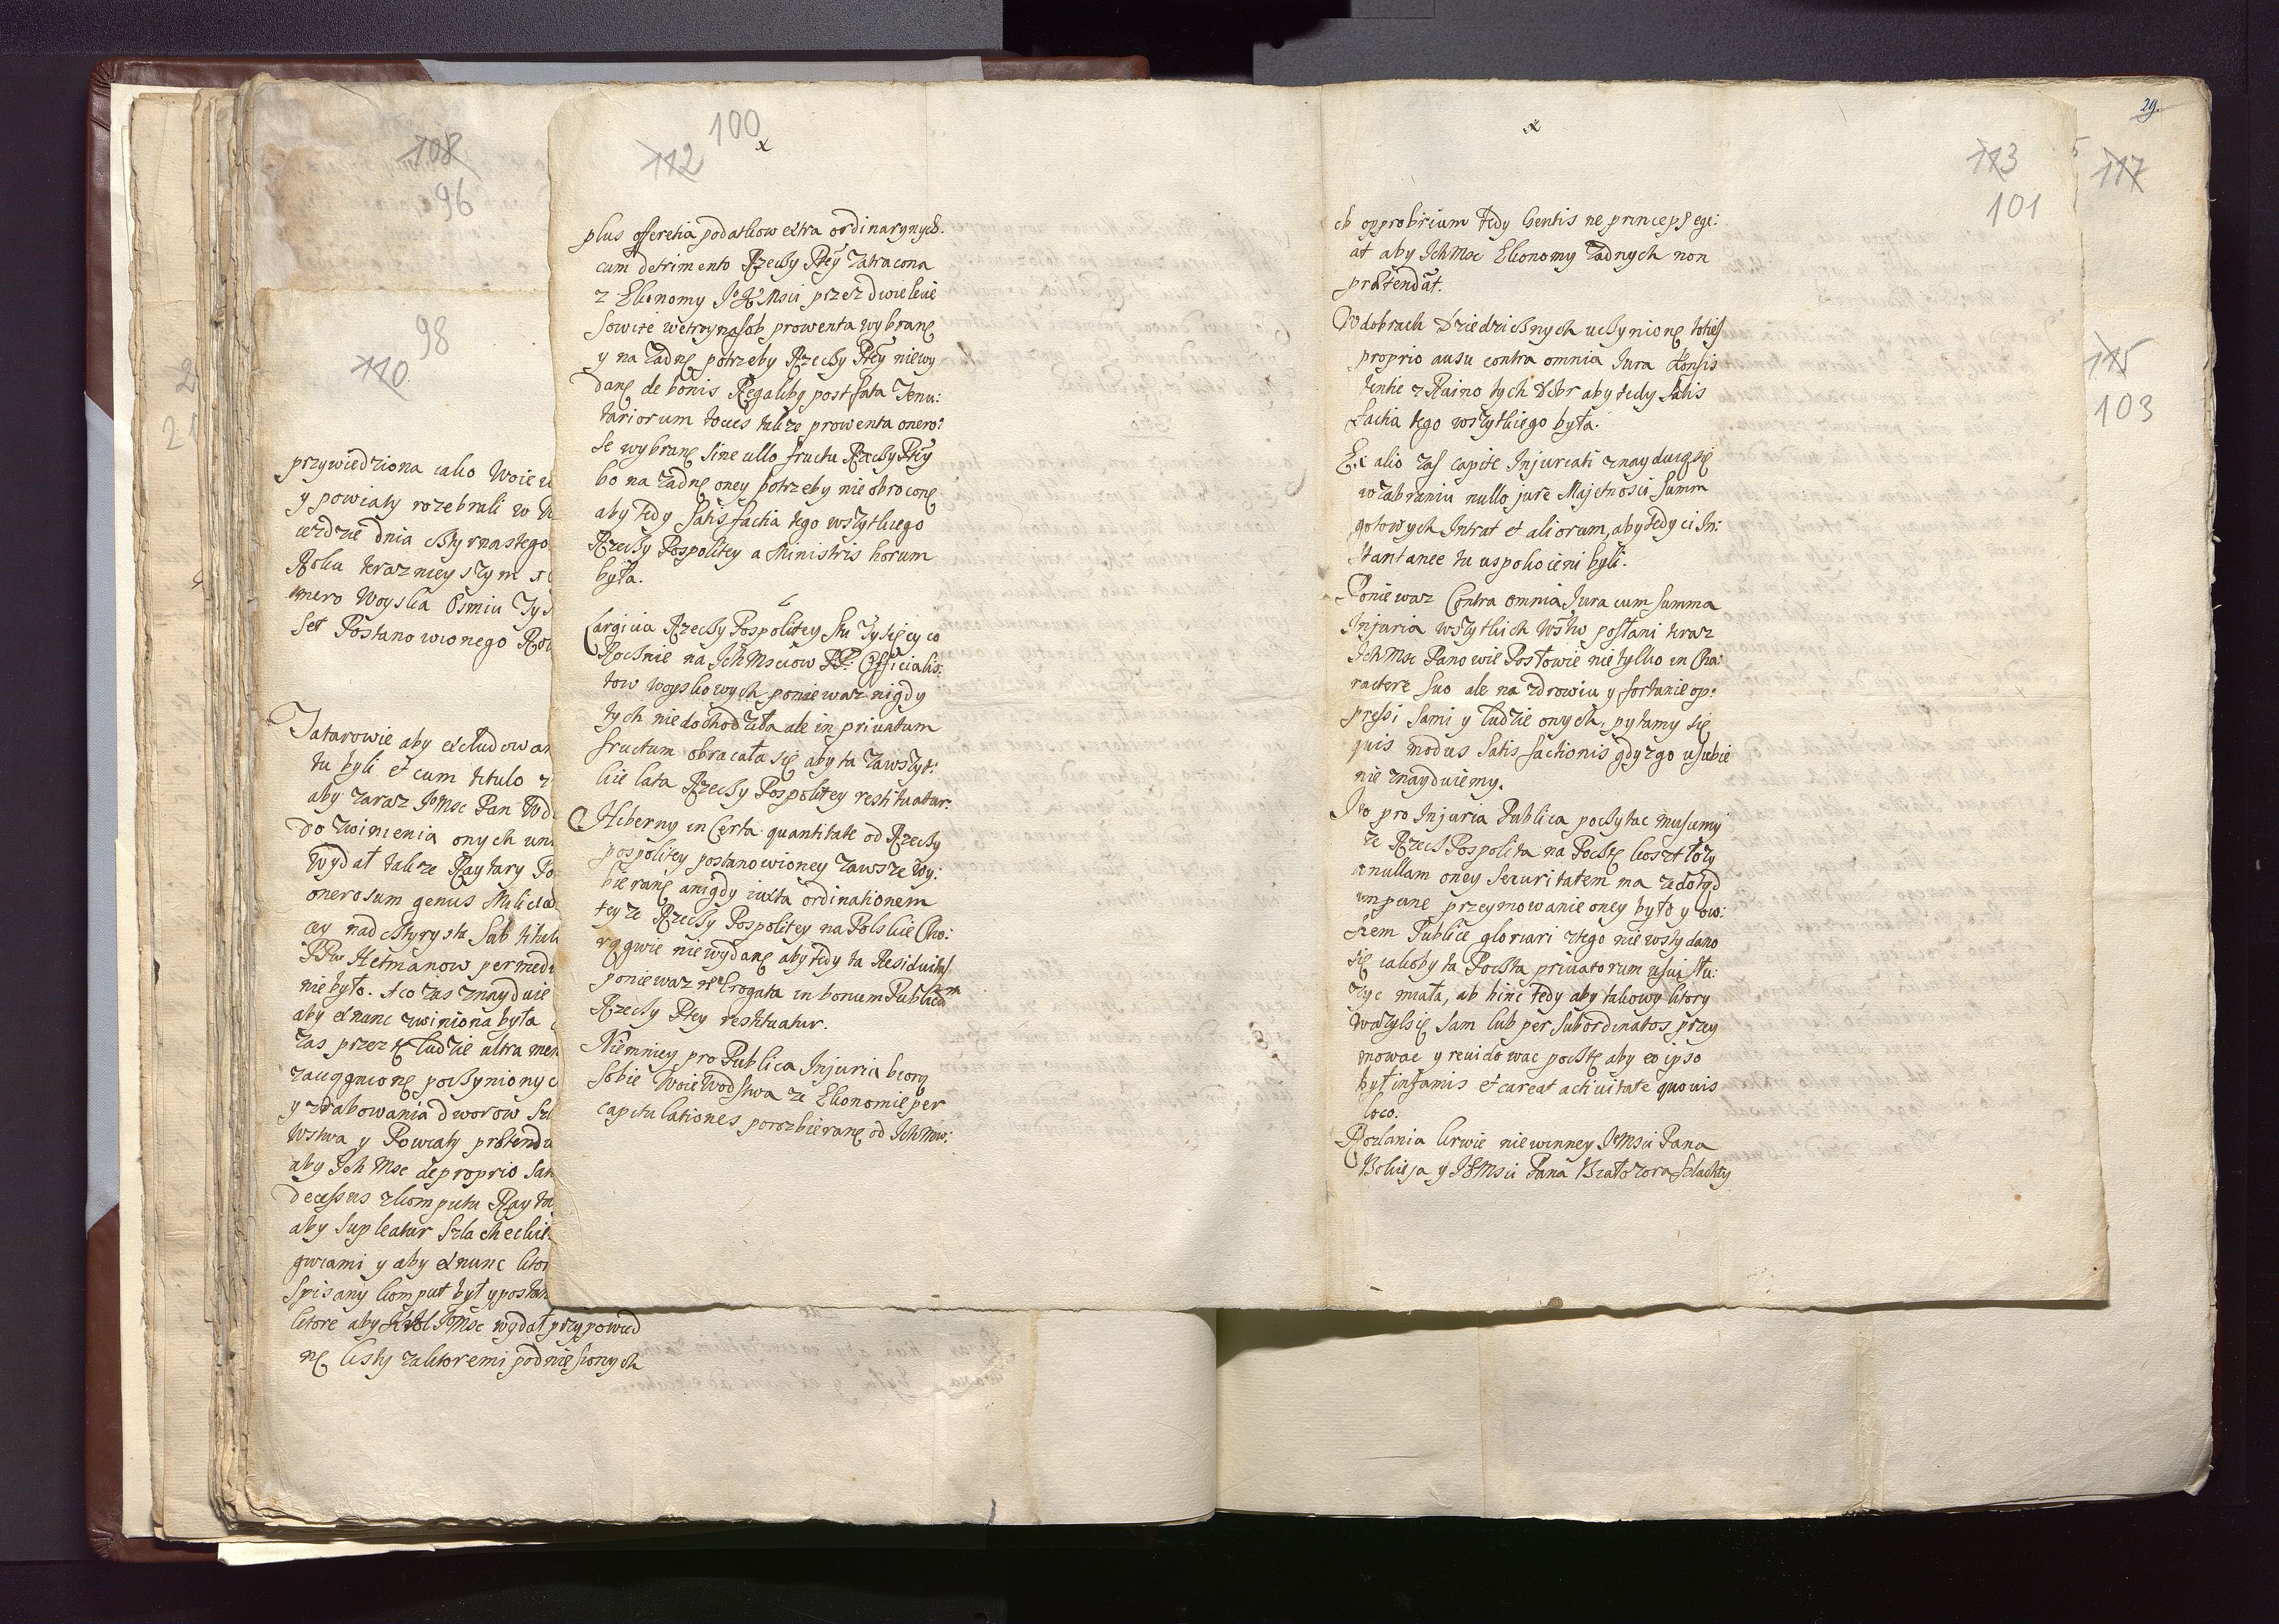 108
96
98
110
przywiedziona iako
y powiaty rozebrali w
ieżdzie dnia cztyrnastego
Roku teraznieyszym
mero Woyska Osmiu
set Postanowionego
Tatarowie aby excludowan
tu byli et cum titulo
aby zaraz Jᵒ Msc Pan
do zwinienia onych
wydał także Raytary
onerosum genus
cey nad cztyrysta sub
PPw Hetmanow per
nie było. A co zas znayduie
aby ex nunc zwiniona była
zas przez te ludzie ultra
zaciągnione poczyniony
y zrabowania dworow
wstwa y Powiaty
aby Ich Msc de proprio
decessus z komputu
aby supleatur Szlacheckie
gwiami y aby ex nunc
spisany komput był y
ktore aby Krol Jᵒ Msc wydał przypowied
nę listy za ktoremi podniesionych
100
112
plus offeretia podatkow extra ordinarynych.
cum detrimento Rzeczy Ptey zatracona
z Ekonomy Jᵒ K Msci przez dwie lecie
sowite we troynasob prowenta wybranę
y na żadnę potrzeby Rzeczy Ptey niewy
danę de bonis Regalibq post fata Tenu:
tariorum toties także prowenta onero:
se wybranę sine ullo fructu Rzeczy Ptey
bo na żadnę oney potrzeby nie obroconę
aby tedy satisfactia tego wszytkiego
Rzeczy Pospolitey a Ministris horum
była.
Largicia Rzeczy Pospolitey Stu Tysięcy co
Rocznie na Ich Msciow PP. Officialis:
tow woyskowych ponieważ nigdy
tych nie dochodziła ale in privatum
fructum obracała się aby ta za wszyt:
kie lata Rzeczy Pospolitey restituatur.
Hiberny in Certa quantitate od Rzeczy
pospolitey postanowioney zawsze wy:
bieranę a nigdy iuxta ordinationem
teyże Rzeczy Pospolitey na Polskie Cho:
rągwie nie wydanę aby tedy ta Residuitas
ponieważ nᵉ Erogata in bonum Publicum
Rzeczy Ptey restituatur.
Niemniey pro Publica Injuria biorą
sobie Woiewodstwa że Ekonomie per
capitulationes porozbieranę od Ich Mw:
29.
113
101
117
115
103
ob opprobrium tedy Gentis ne princeps ege:
at aby Ich Msc Ekonomy żadnych non
prætendāt.
W dobrach Dziedzicznych uczynionę toties
proprio ausu contra omnia Jura Konsis
tentie z Ruino tych Dobr aby tedy satis
factia tego wszytkiego była.
Ex alio zaś capite Injuriati znayduią się
w zabraniu nullo jure Majetnosci Summ
gotowych Intrat et aliorum, aby tedy ci In:
stantanee tu uspokoieni byli.
Ponieważ Contra omnia Jura cum summa
Injuria wszytkich Wstw posłani teraz
Ich Msc Panowie Posłowie nie tylko in Cha:
ractere suo ale na zdrowiu y fortunie op:
pressi sami y ludzie onych, pytamy się
quis modus satisfactionis gdyż go u siebie
nie znayduiemy.
Jᵒ pro Injuria Publica poczytac musiemy
że Rzecz Pospolita na Pocztę koszt łoży
a nullam oney securitatem ma że dotąd
impune przeymowanie oney było y ow:
szem Publice gloriari z tego nie wstydano
się iakoby ta Poczta privatorum usui słu:
życ miała, ab hinc tedy aby takowy ktory
ważył się sam lub per subordinatos przey
mowac y rewidowac pocztę aby eo ipso
był infamis et careat activitate quovis
loco.
Rozlania krwie niewinney Jᵒ Msci Pana
Bokieja y Jᵒ Msci Pana Białozora Szlachty